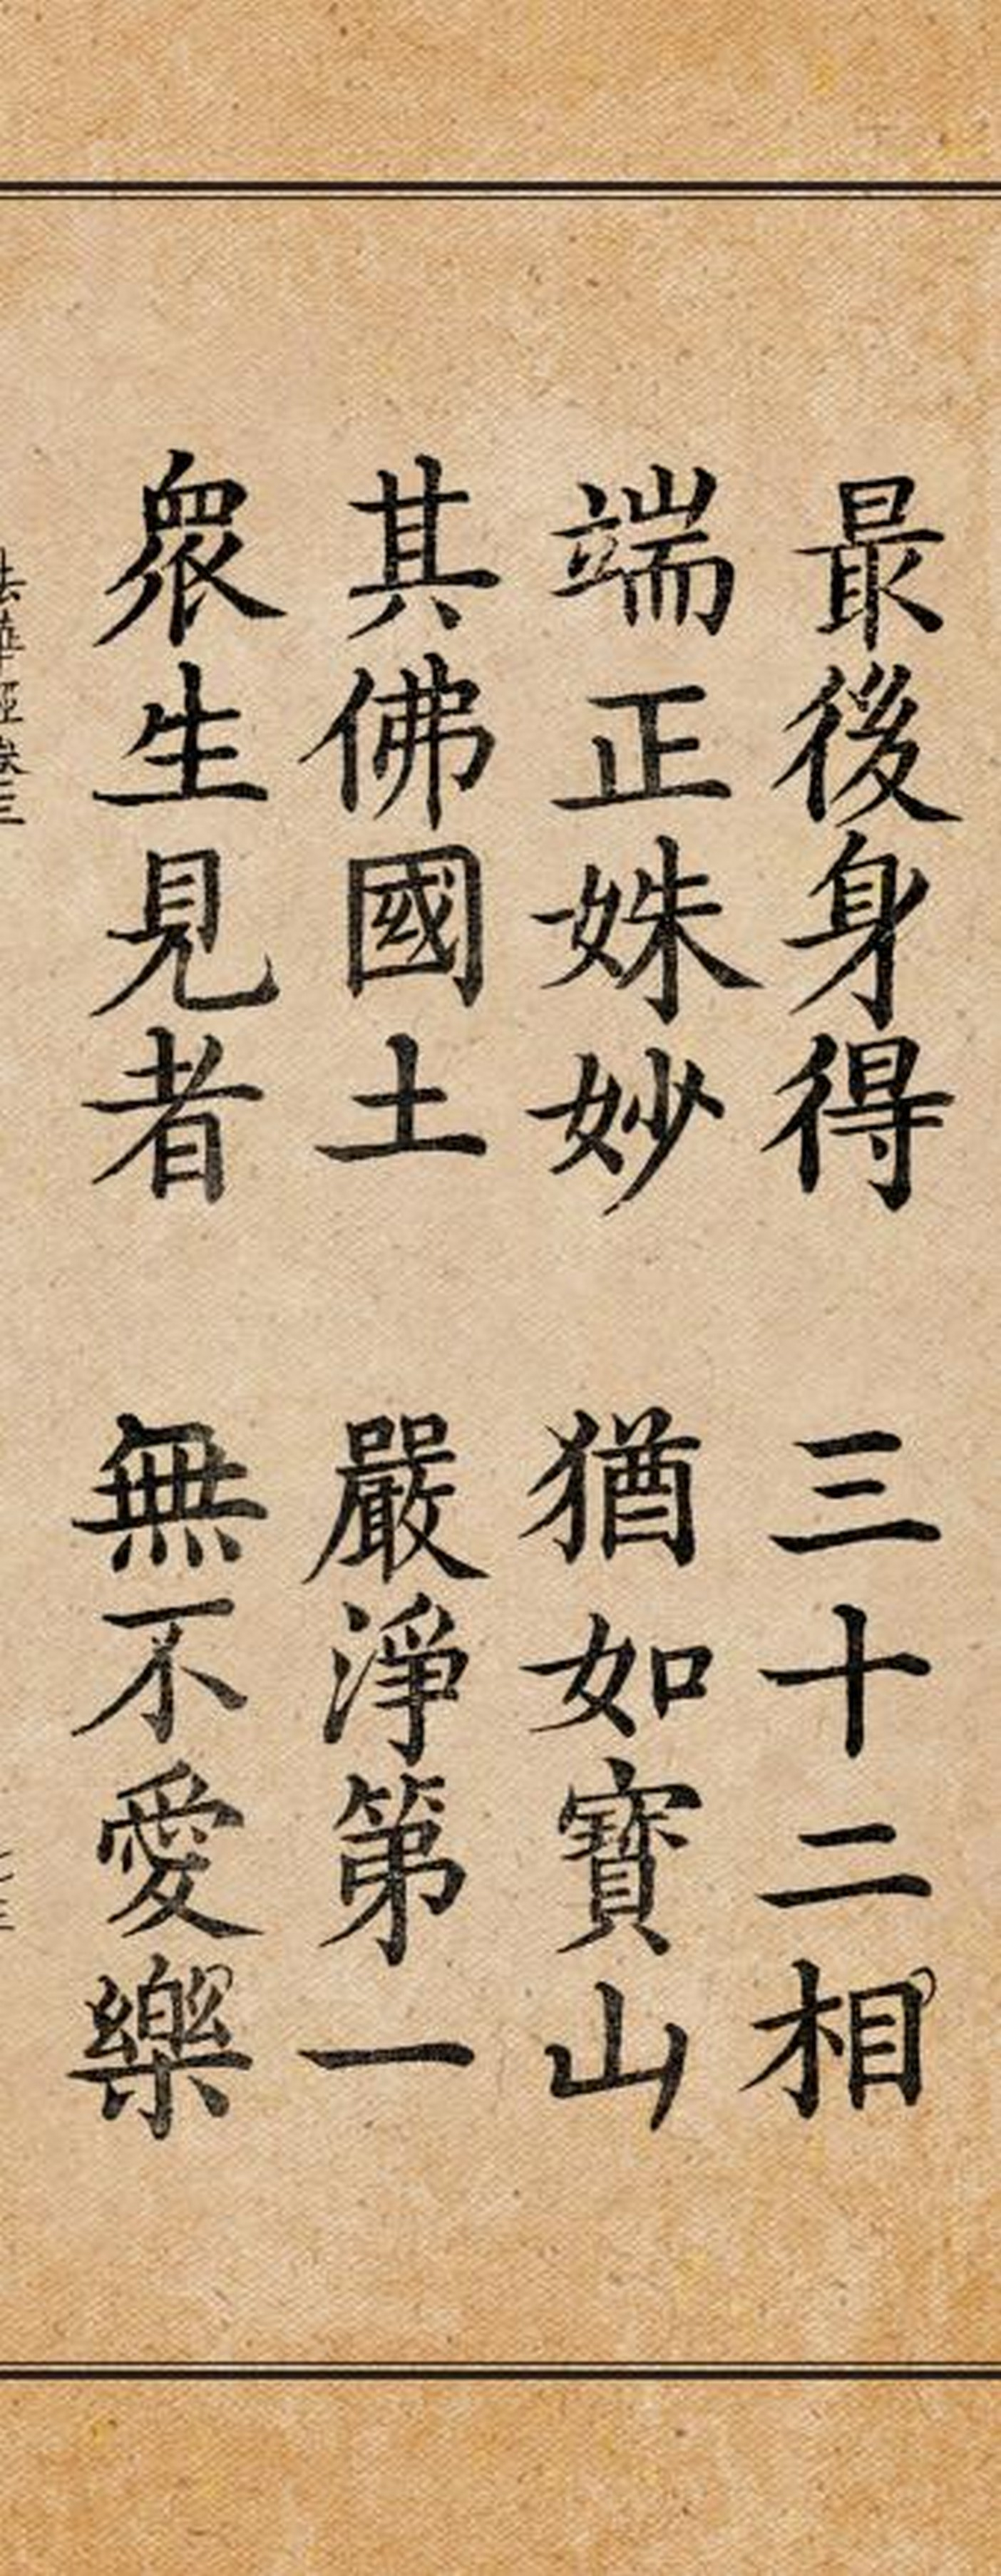 最後身得　三十二相
端正姝妙　猶如寶山
其佛國土　嚴淨第一
衆生見者　無不愛樂
法華經卷三